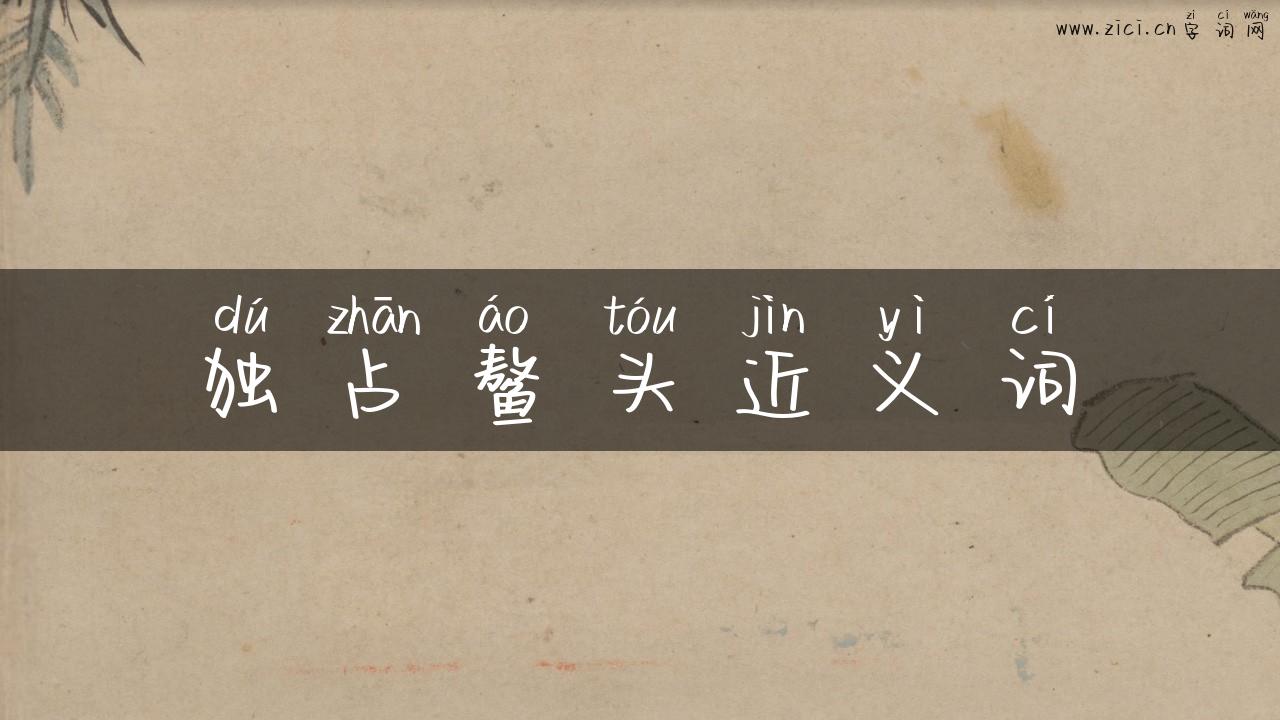 zì cí wǎng
www.zici.cn 字词网
dú zhān áo tóu jìn yì cí
独占鳌头近义词